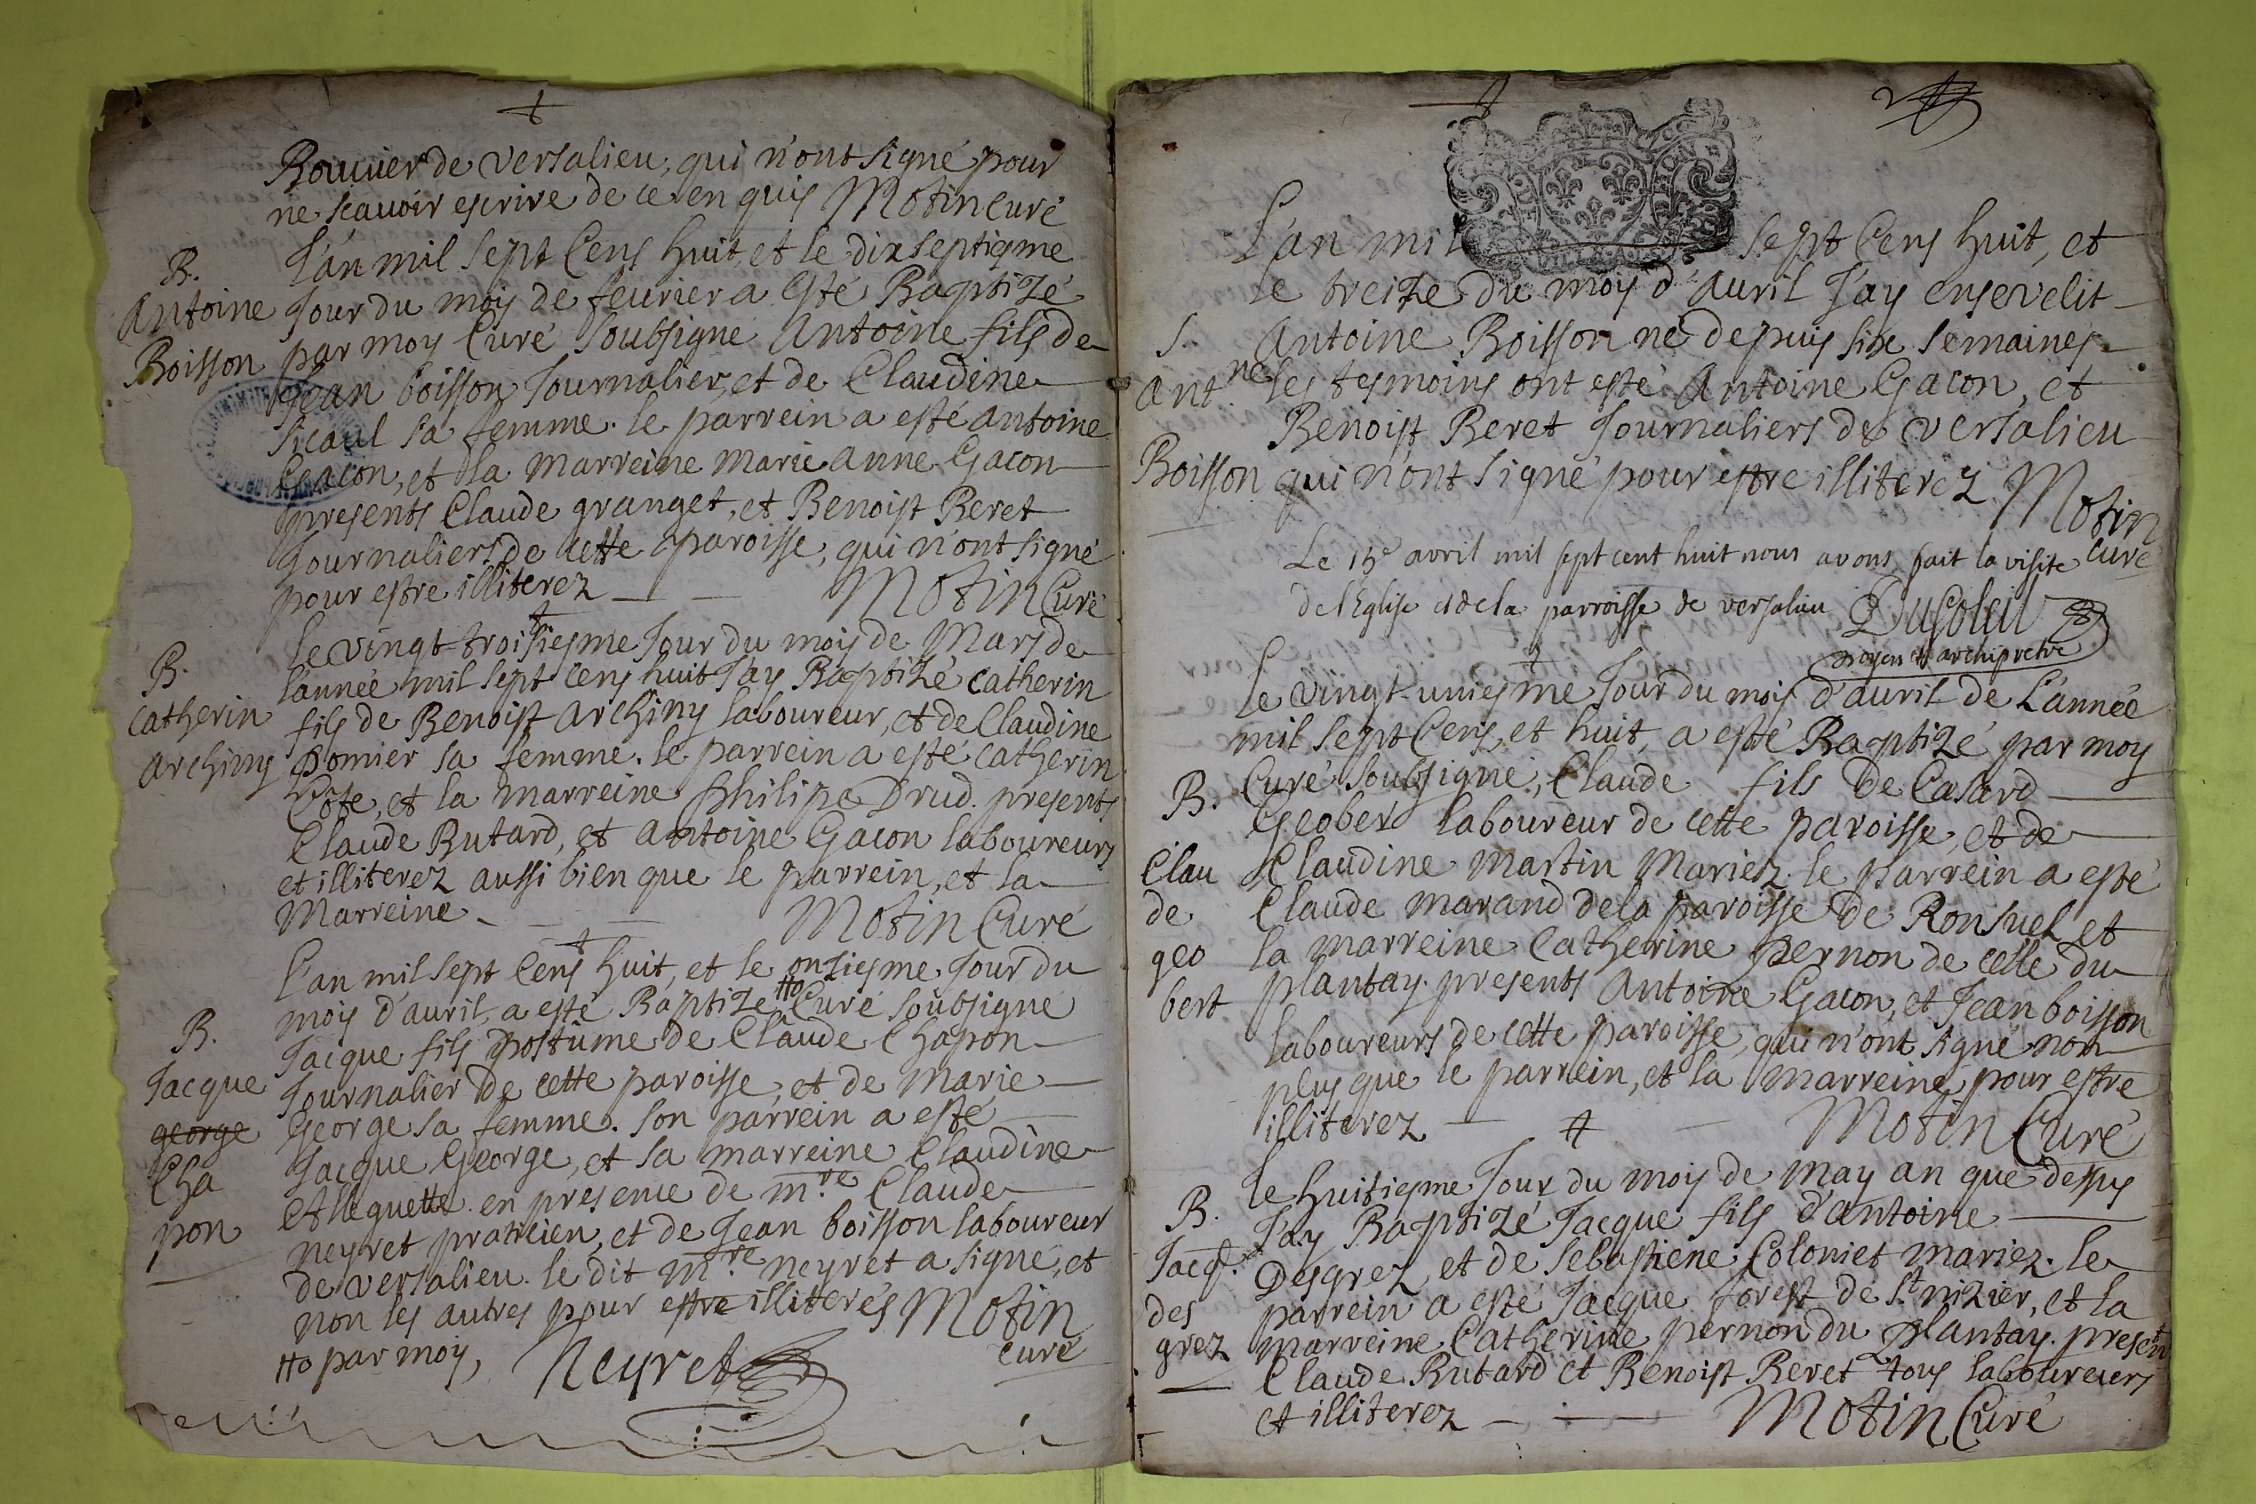 Bouuier de versalieu, qui n'ont signé pour
ne scauoir escrire de ce en quis Motin Curé
L'an mil sept Cens huit, et le dixseptieme
B.
Antoine
Boisson
Jour du mois de feurier a esté Baptizé
par moy Curé soubsigné Antoine fils de
Jean boisson Journalier, et de Claudine
sicaul sa femme. le parrein a esté antoine
Gacon, et la marreine marie anne Gacon
presents Claude granget, et Benoist Beret
Journaliers de cette paroisse, qui n'ont signé
pour estre illiterez Motin Curé
le vingt-troisiesme Jour du mois de Mars de
B.
Catherin
archiny
l'année mil sept cens huit J'ay Baptizé catherin
fils de Benoist archiny laboureur, et de Claudine
pomier sa femme. le parrein a esté catherin
Côte, et la marreine philipe Drud. presents
Claude Butard, et antoine Gacon laboureurs
et illiterez aussi bien que le parrein, et la
Marreine Motin Curé
L'an mil sept Cens huit, et le onziesme Jour du
mois d'auril, a esté Baptizé #o Curé soubsigné
B.
Jacque
george
Cha
pon
Jacque fils postume de Claude Chapon
Journalier de cette paroisse, et de Marie
George sa femme. son parrein a esté
Jacque George, et sa marreine Claudine
Alleguette. en presence de m.re Claude
neyret praticien, et de Jean boisson laboureur
de versalieu. le dit m.re neyret a signé, et
non les autres pour estre illiterés Motin
curé
#o par moy, Neyret
L'an mil sept Cens huit, et
le treize du mois d'auril J'ay ensevelit
S.
Ant.ne
Boisson
Antoine Boisson né depuis six semaines
les tesmoins ont esté Antoine Gacon, et
Benoist Beret Journaliers de versalieu
qui n'ont signé pour estre illiterez Motin
curé
Le 15e avril mil sept cent huit nous avons fait la visite
de l'Eglise et de la parroisse de versalieu Dusoleil
doyen et archipretre
le vingt-uniesme Jour du mois d'auril de L'année
mil sept Cens, et huit, a esté Baptizé par moy
B.
Clau
de
geo
bert
Curé soubsigné, Claude fils De Casard
Geober laboureur de cette paroisse, et de
Claudine Martin Mariez. le parrein a esté
Claude marand de la paroisse de Ronsuel et
la marreine Catherine pernon de celle du
plantay. presents Antoine Gacon, et Jean boisson
laboureurs de cette paroisse, qui n'ont signé non
plus que le parrein, et la marreine pour estre
illiterez Motin Curé
le huitiesme Jour du mois de may an que dessus
B.
Jacq.
des
grez
J'ay Baptizé Jacque fils d'antoine
Desgrez, et de sebastiene Coloniet mariez. le
parrein a esté Jacque forest de St nizier, et la
marreine Catherine pernon du plantay. present
Claude Butard et Benoist Beret tous laboureurs
et illiterez Motin Curé